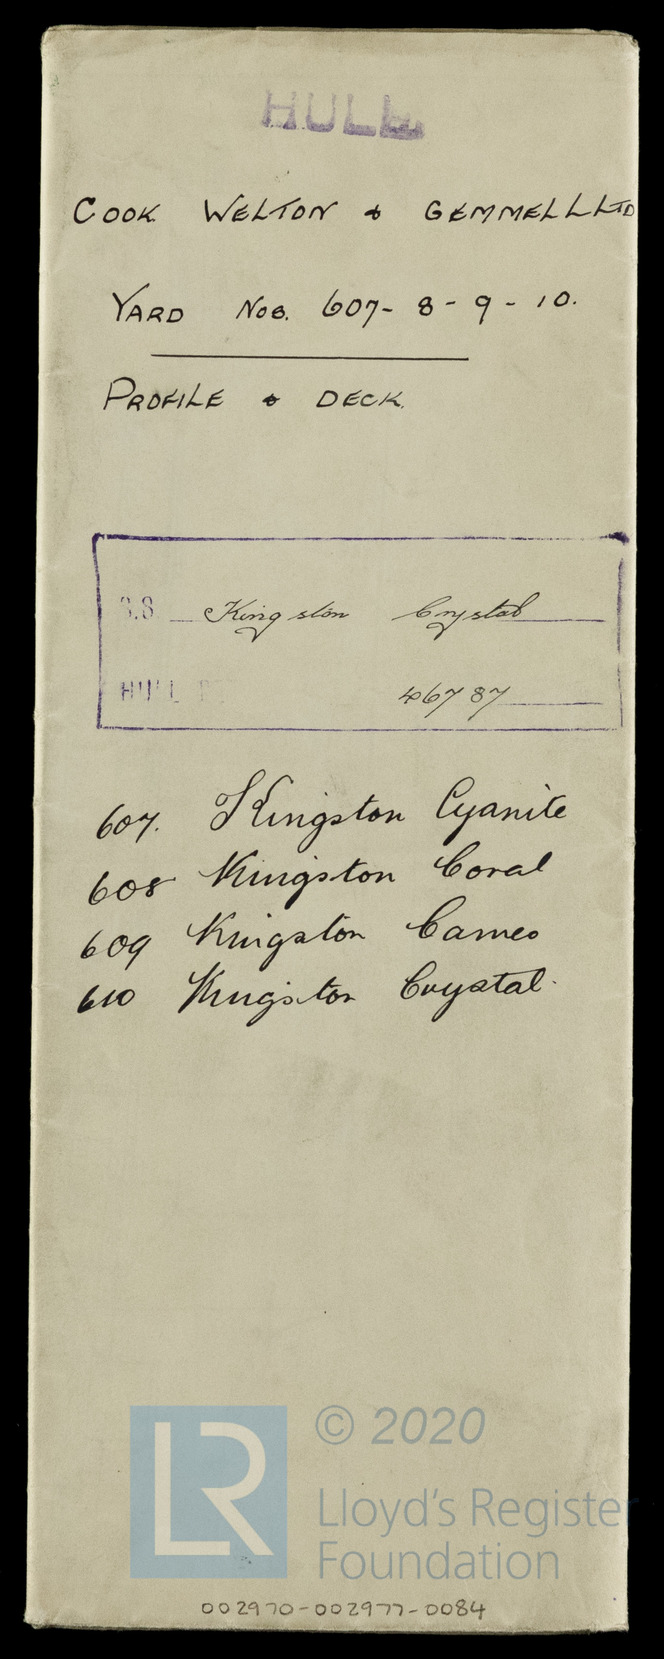 HULL
COOK WELTON & GEMMELL LTD
YARD Nos. 607-8-9-10.
PROFILE & DECK.
S.S. Kingston Crystal
HULL 46787
607. Kingston Cyanite
608 Kingston Coral
609 Kingston Cameo
610 Kingston Crystal.
LR
© 2020
Lloyd's Register
Foundation
002970-002977-0084